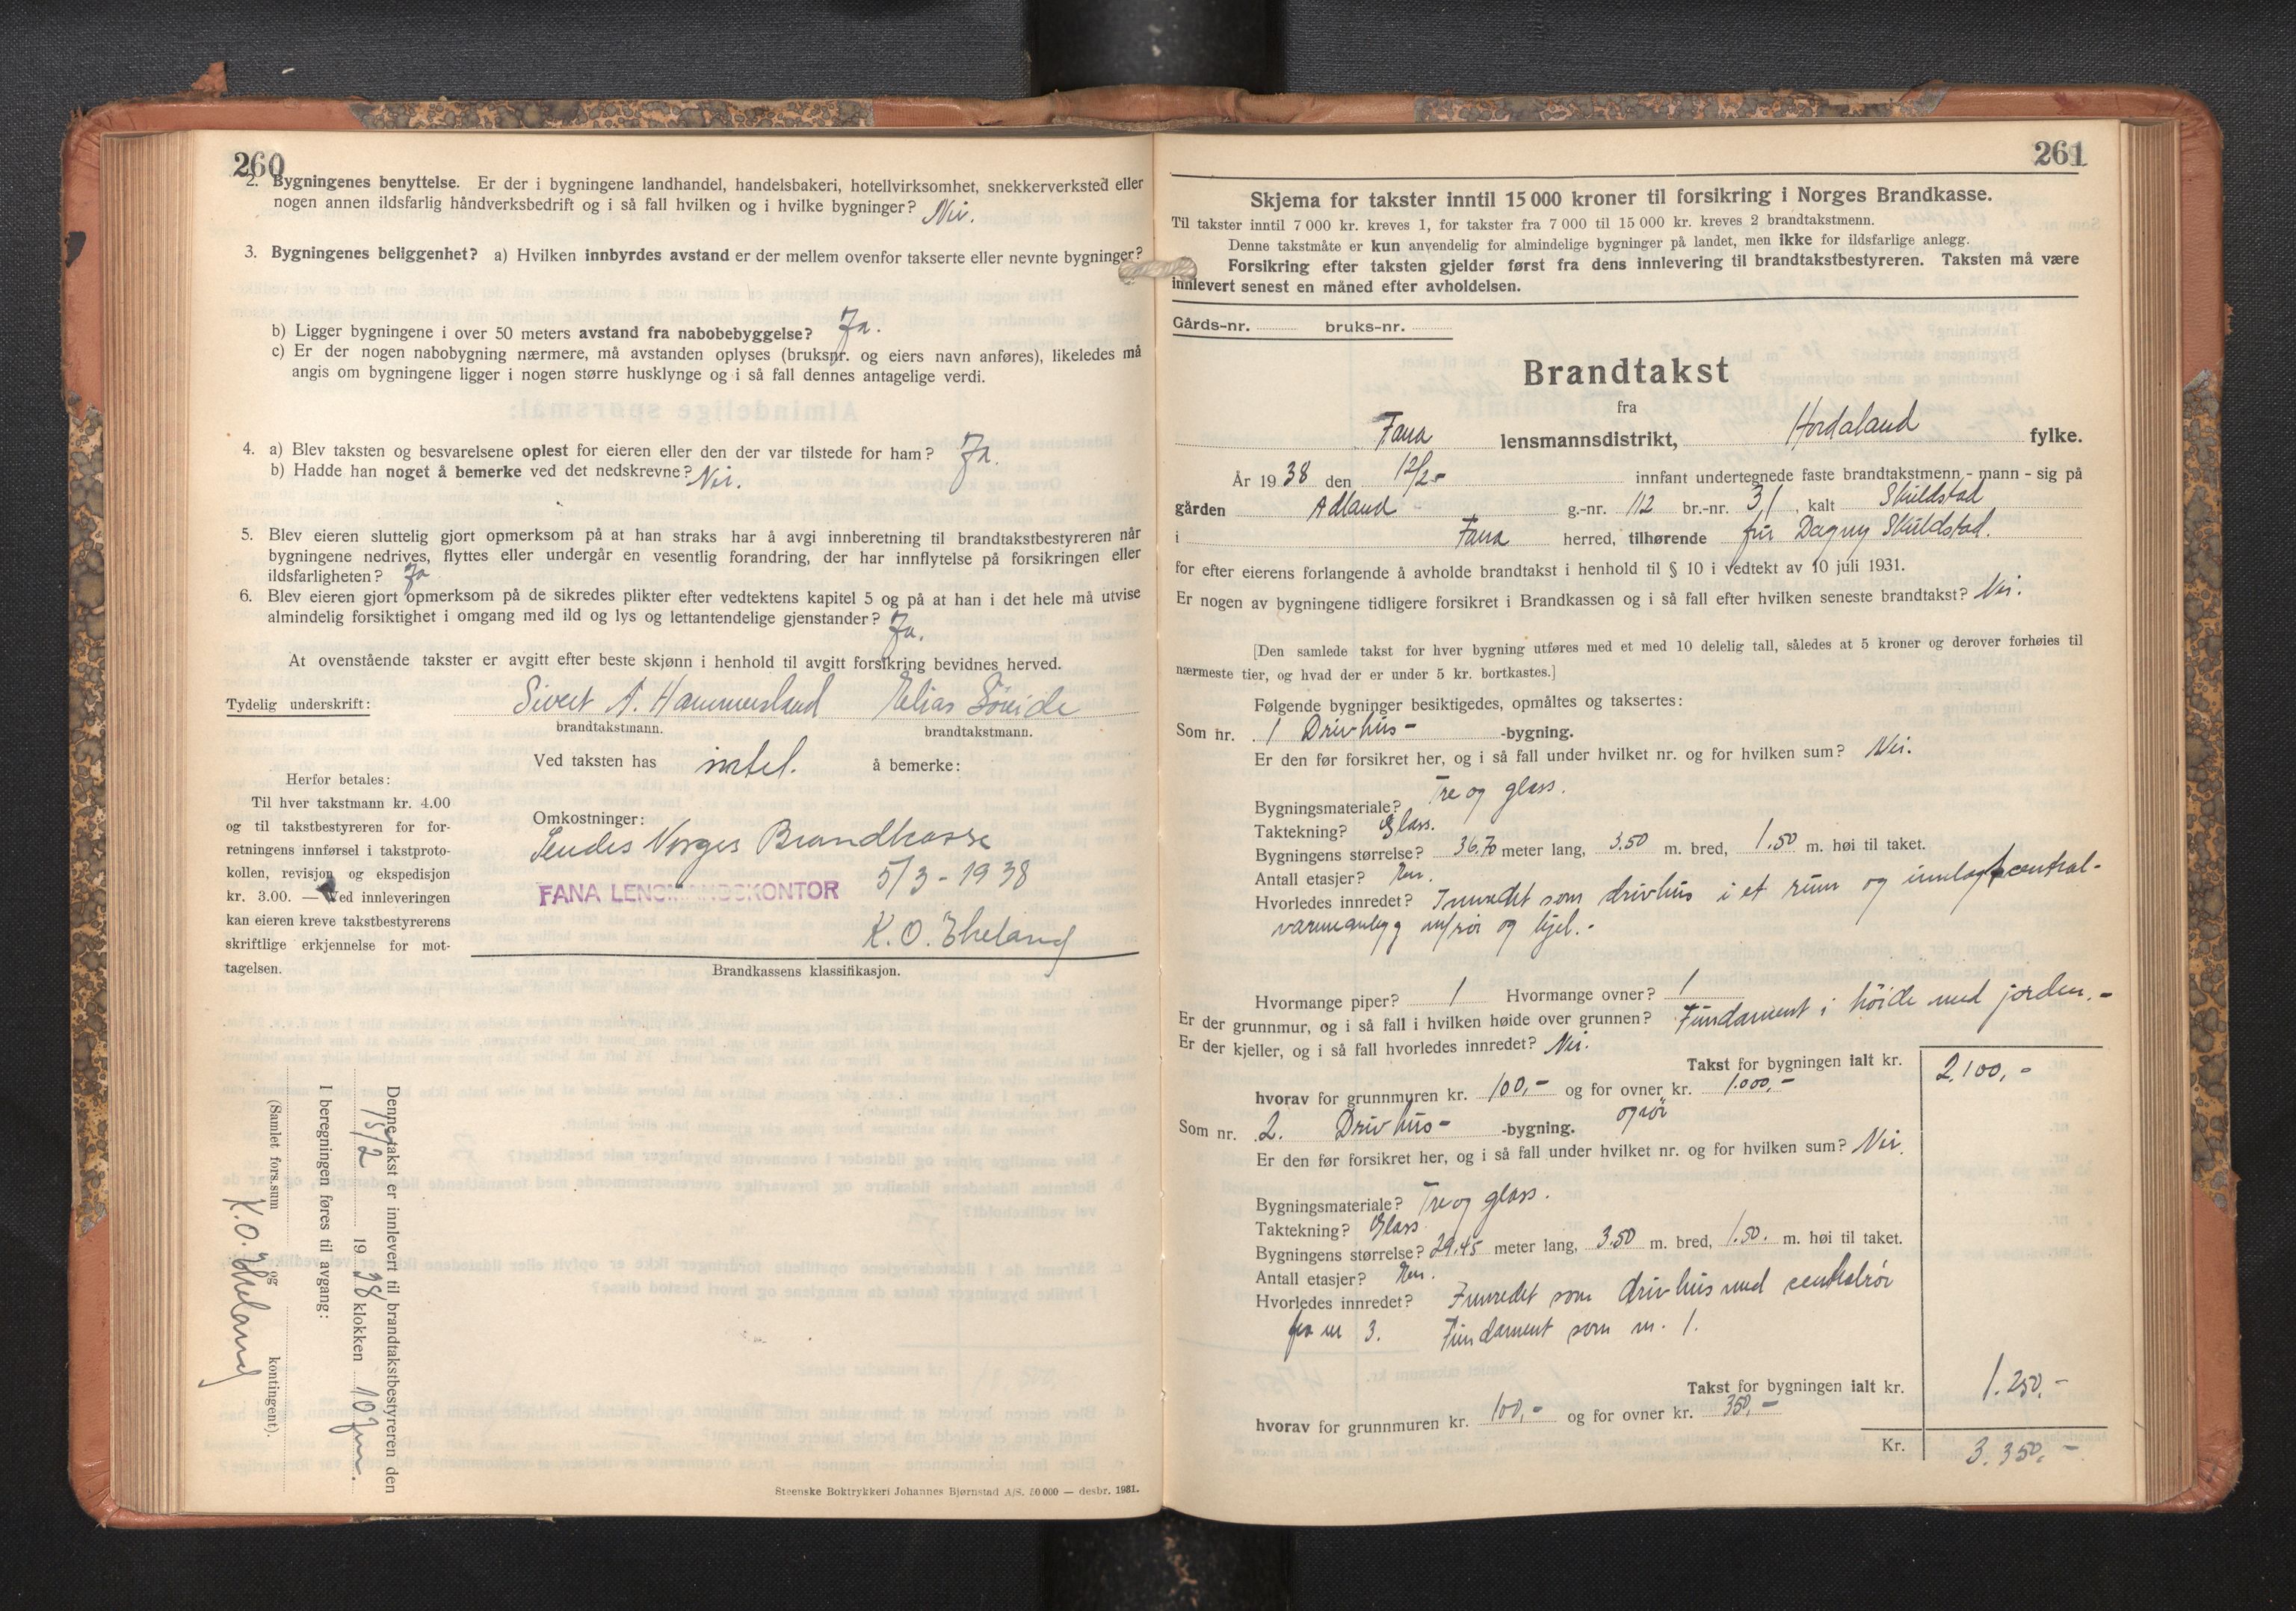 260
2. Bygningenes benyttelse. Er der i bygningene landhandel, handelsbakeri, hotellvirksomhet, snekkerverksted eller
nogen annen ildsfarlig håndverksbedrift og i så fall hvilken og i hvilke bygninger? Nei.
3. Bygningenes beliggenhet? a) Hvilken innbyrdes avstand er der mellem ovenfor takserte eller nevnte bygninger?
b) Ligger bygningene i over 50 meters avstand fra nabobebyggelse? Ja.
c) Er der nogen nabobygning nærmere, må avstanden oplyses (bruksnr. og eiers navn anføres), likeledes må
angis om bygningene ligger i nogen større husklynge og i så fall dennes antagelige verdi.
4. a) Blev taksten og besvarelsene oplest for eieren eller den der var tilstede for ham? Ja.
b) Hadde han noget å bemerke ved det nedskrevne? Nei.
5. Blev eieren sluttelig gjort opmerksom på at han straks har å avgi innberetning til brandtakstbestyreren når
bygningene nedrives, flyttes eller undergår en vesentlig forandring, der har innflytelse på forsikringen eller
ildsfarligheten? Ja
6. Blev eieren gjort opmerksom på de sikredes plikter efter vedtektens kapitel 5 og på at han i det hele må utvise
almindelig forsiktighet i omgang med ild og lys og lettantendelige gjenstander? Ja.
At ovenstående takster er avgitt efter beste skjønn i henhold til avgitt forsikring bevidnes herved.
Tydelig underskrift: Sivert A. Hammersland Elias Søvide
brandtakstmann. brandtakstmann.
Ved taksten has intet. å bemerke:
Herfor betales:
Til hver takstmann kr. 4.00
og til takstbestyreren for for-
retningens innførsel i takstproto-
kollen, revisjon og ekspedisjon
kr. 3.00. — Ved innleveringen
kan eieren kreve takstbestyrerens
skriftlige erkjennelse for mot-
tagelsen.
Omkostninger:
Sendes Norges Brandkasse
5/3 - 1938
FANA LENSMANDSKONTOR
K. O. Ekeland
Brandkassens klassifikasjon.
Denne takst er innlevert til brandtakstbestyreren den
15/2 1938 klokken 10 fm.
I beregningen føres til avgang:
(Samlet fors.sum og kontingent).
K. O. Ekeland
Steenske Boktrykkeri Johannes Bjørnstad A/S. 50 000 — desbr. 1931.
261
Skjema for takster inntil 15 000 kroner til forsikring i Norges Brandkasse.
Til takster inntil 7 000 kr. kreves 1, for takster fra 7 000 til 15 000 kr. kreves 2 brandtakstmenn.
Denne takstmåte er kun anvendelig for almindelige bygninger på landet, men ikke for ildsfarlige anlegg.
Forsikring efter taksten gjelder først fra dens innlevering til brandtakstbestyreren. Taksten må være
innlevert senest en måned efter avholdelsen.
Gårds-nr. bruks-nr.
Brandtakst
fra
Fana lensmannsdistrikt, Hordaland fylke.
År 1938 den 12/2- innfant undertegnede faste brandtakstmenn - mann - sig på
gården Adland g.-nr. 112 br.-nr. 31, kalt Skuldstad
i Fana herred, tilhørende fru Dagny Skuldstad.
for efter eierens forlangende å avholde brandtakst i henhold til § 10 i vedtekt av 10 juli 1931.
Er nogen av bygningene tidligere forsikret i Brandkassen og i så fall efter hvilken seneste brandtakst? Nei.
[Den samlede takst for hver bygning utføres med et med 10 delelig tall, således at 5 kroner og derover forhøies til
nærmeste tier, og hvad der er under 5 kr. bortkastes.]
Følgende bygninger besiktigedes, opmåltes og taksertes:
Som nr. 1 Drivhus- -bygning.
Er den før forsikret her, og i så fall under hvilket nr. og for hvilken sum? Nei.
Bygningsmateriale? Tre og glass.
Taktekning? Glass.
Bygningens størrelse? 36.70 meter lang, 3.50 m. bred, 1.50 m. høi til taket.
Antall etasjer? En.
Hvorledes innredet? Innredet som drivhus i et rum og innlagt central-
varmeanlegg m/rør og kjel.-
Hvormange piper? 1 Hvormange ovner? 1
Er der grunnmur, og i så fall i hvilken høide over grunnen? Fundament i høide med jorden.-
Er der kjeller, og i så fall hvorledes innredet? Nei.
Takst for bygningen ialt kr. 2.100,-
hvorav for grunnmuren kr. 100,- og for ovner kr. 1.000,-
og rør
Som nr. 2. Drivhus- -bygning.
Er den før forsikret her, og i så fall under hvilket nr. og for hvilken sum? Nei.
Bygningsmateriale? Tre og glass.
Taktekning? Glass
Bygningens størrelse? 29.45 meter lang, 3.50 m. bred, 1.50. m. høi til taket.
Antall etasjer? En.
Hvorledes innredet? Innredet som drivhus med centralrør
fra nr 3. Fundament som nr. 1.
Takst for bygningen ialt kr. 1.250,-
hvorav for grunnmuren kr. 100,- og for ovner kr. 350,-
Kr. 3.350,-